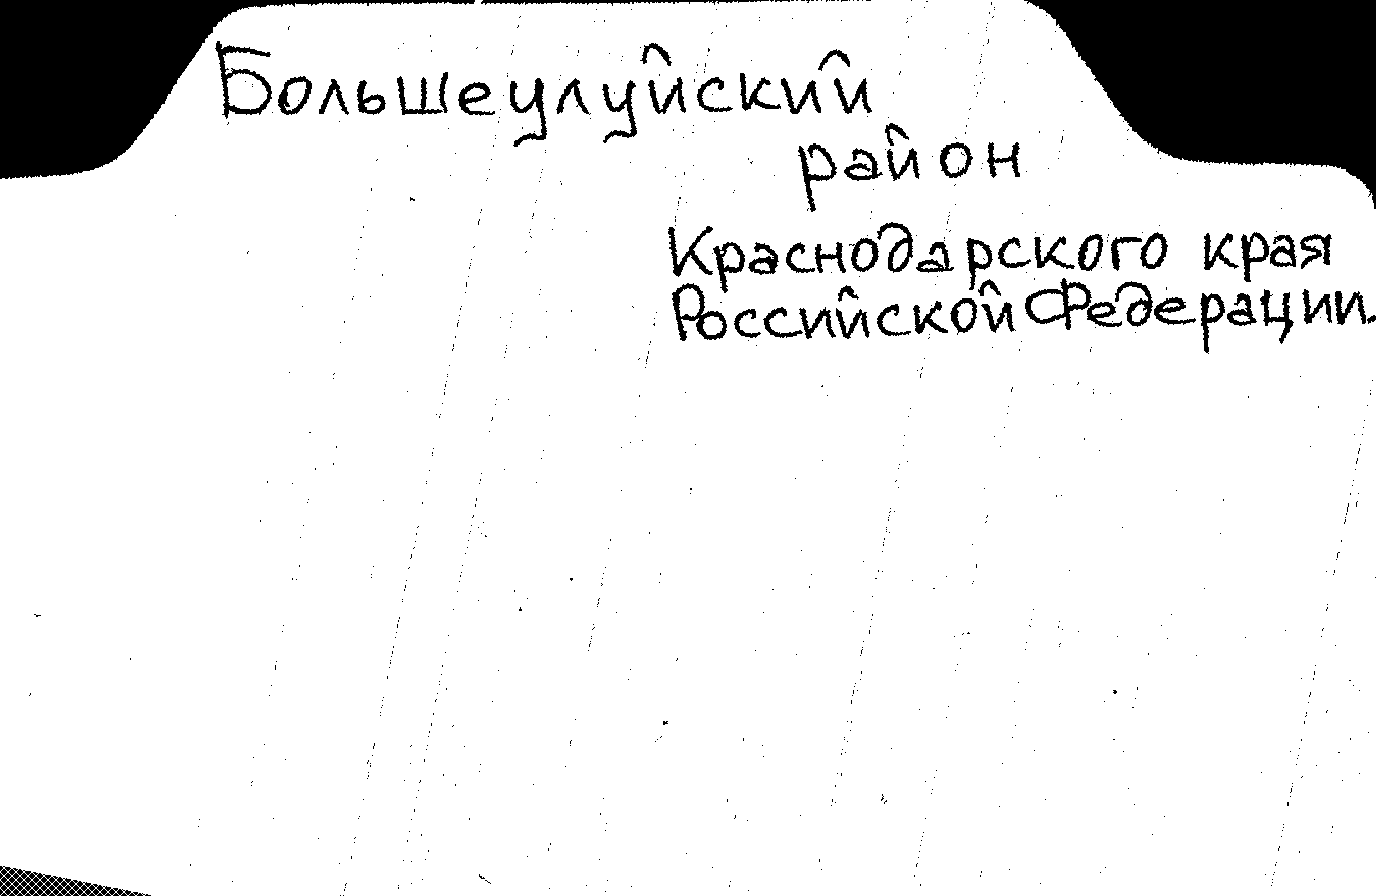 Большеулуйский
район
Краснодарского края
Российской Федерации.